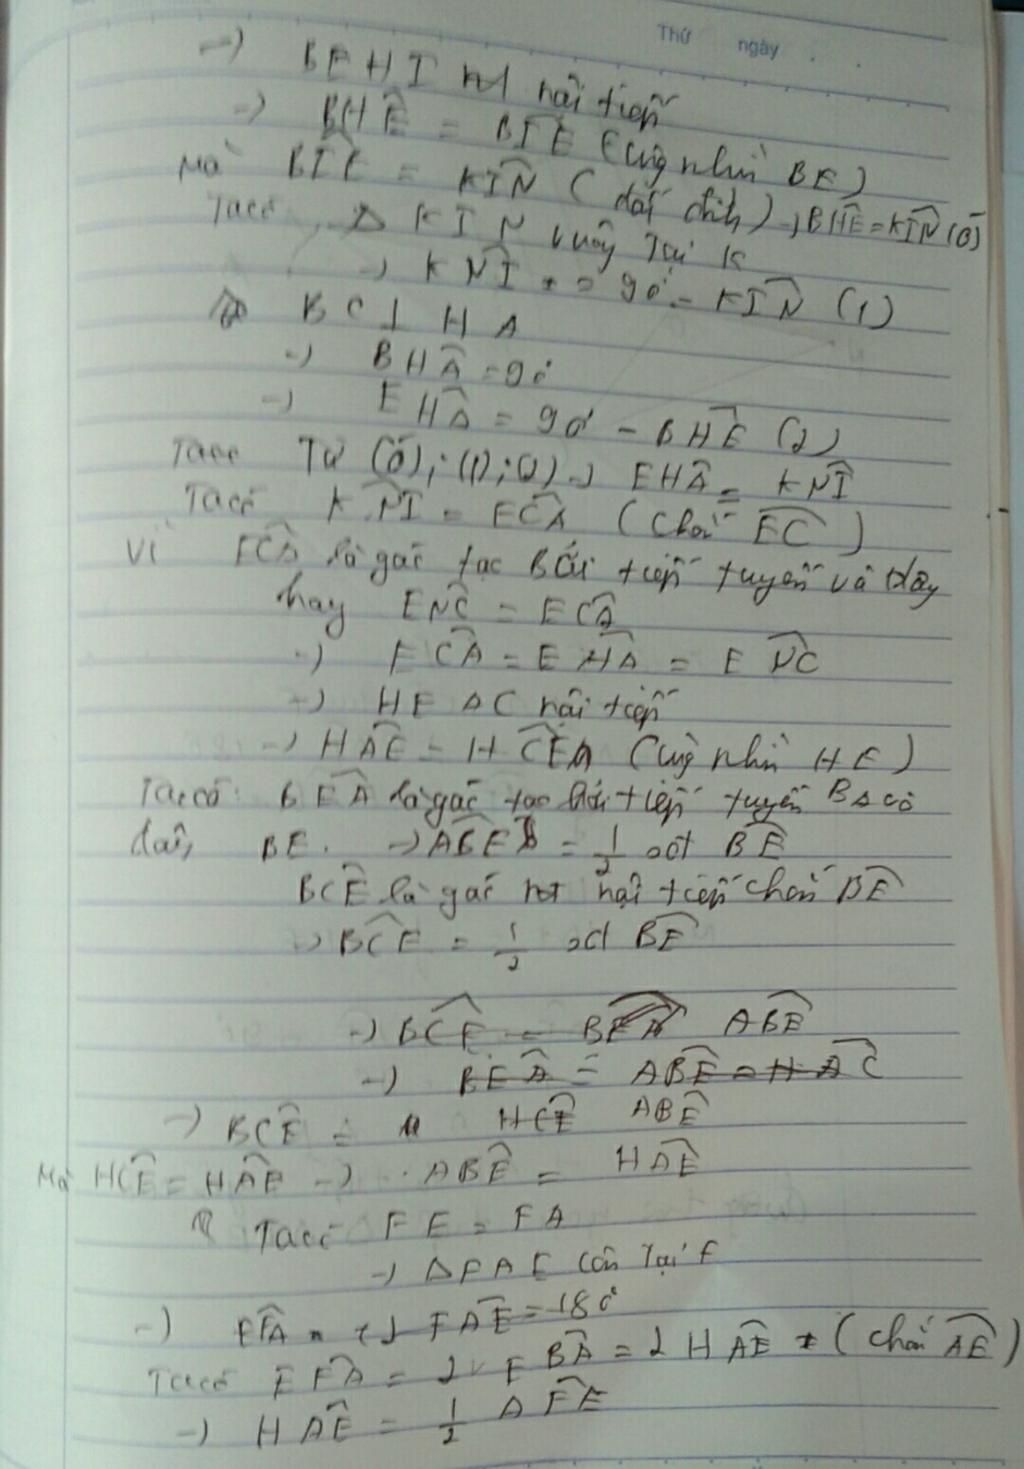 Thứ ngày
-) BEHI nội tiếp
-) BHE = BIE (cùng nhìn BE)
Mà BIE = KIN (đối đỉnh) -) BHE = KIN (0)
Ta có Δ KIN vuông tại K
-) KNI = 90° - KIN (1)
BC ⊥ HA
-) BHA = 90°
-) EHA = 90° - BHE (2)
Ta có Từ (0); (1); (2) -) EHA = KNI
Ta có KNI = ECA (chắn EC)
Vì ECA là góc tạo bởi tiếp tuyến và dây
hay ENC = ECA
-) ECA = EHA = ENC
-) HEAC nội tiếp
-) HAE = HCE (cùng nhìn HE)
Ta có: BEA là góc tạo bởi tiếp tuyến BA và
dây BE. -) ABE = 1/2 sđ BE
BCE là góc nội tiếp chắn BE
-) BCE = 1/2 sđ BE
-) BCE = BEA ABE
-) BEA = ABE = HAC
-) BCE = HCE ABE
Mà HCE = HAE -) ABE = HAE
Ta có FE = FA
-) ΔFAE cân tại F
-) EFA + 2 FAE = 180°
Ta có EFA = 2 EBA = 2 HAE (chắn AE)
-) HAE = 1/2 AFE